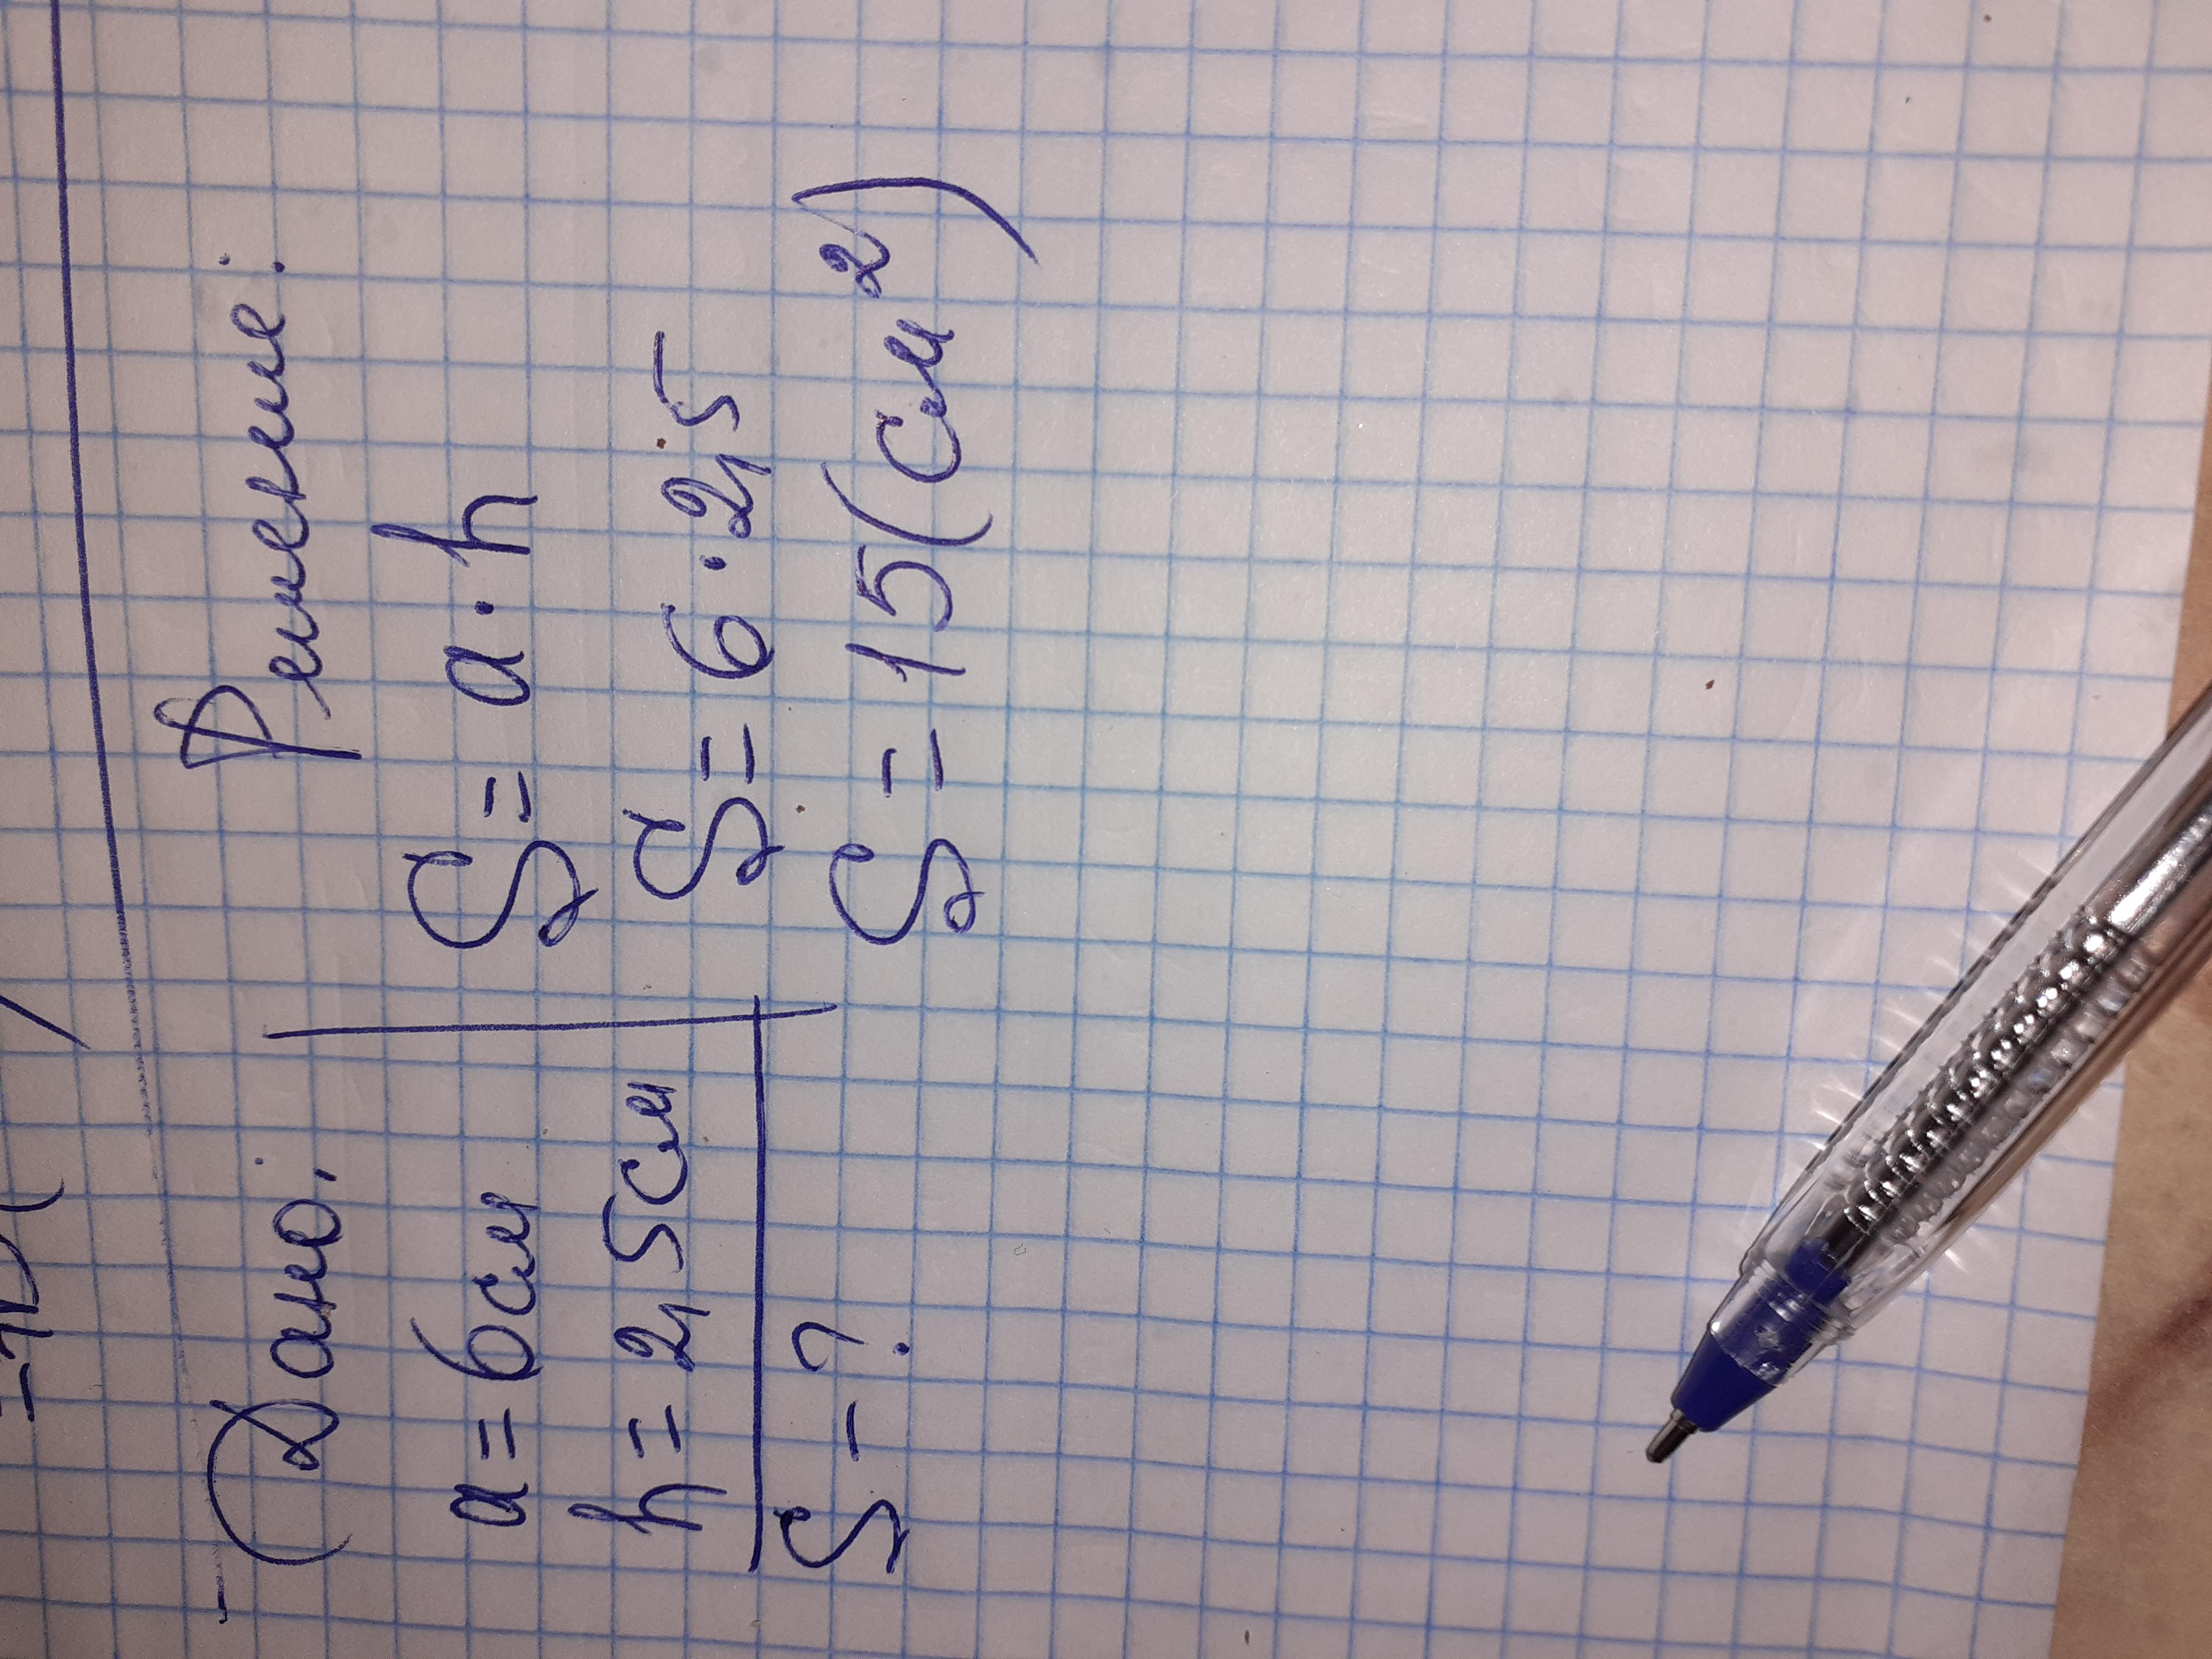 Дано:
a = 6см
h = 2,5см
S - ?
Решение:
S = a · h
S = 6 · 2,5
S = 15(см²)